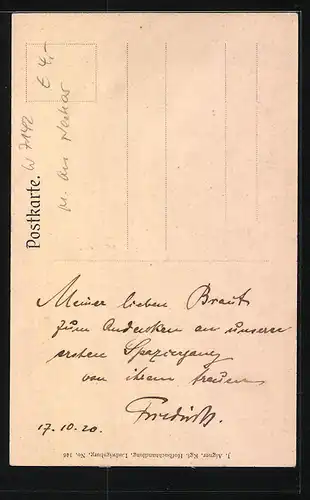 Postkarte.
W 7142
€ 4,-
Meiner lieben Braut
zum Andenken an unseren
ersten Spaziergang
von ihrem treuen
Friedrich.
17.10.20.
J. Aigner, Kgl. Hofbuchhandlung, Ludwigsburg, No. 146